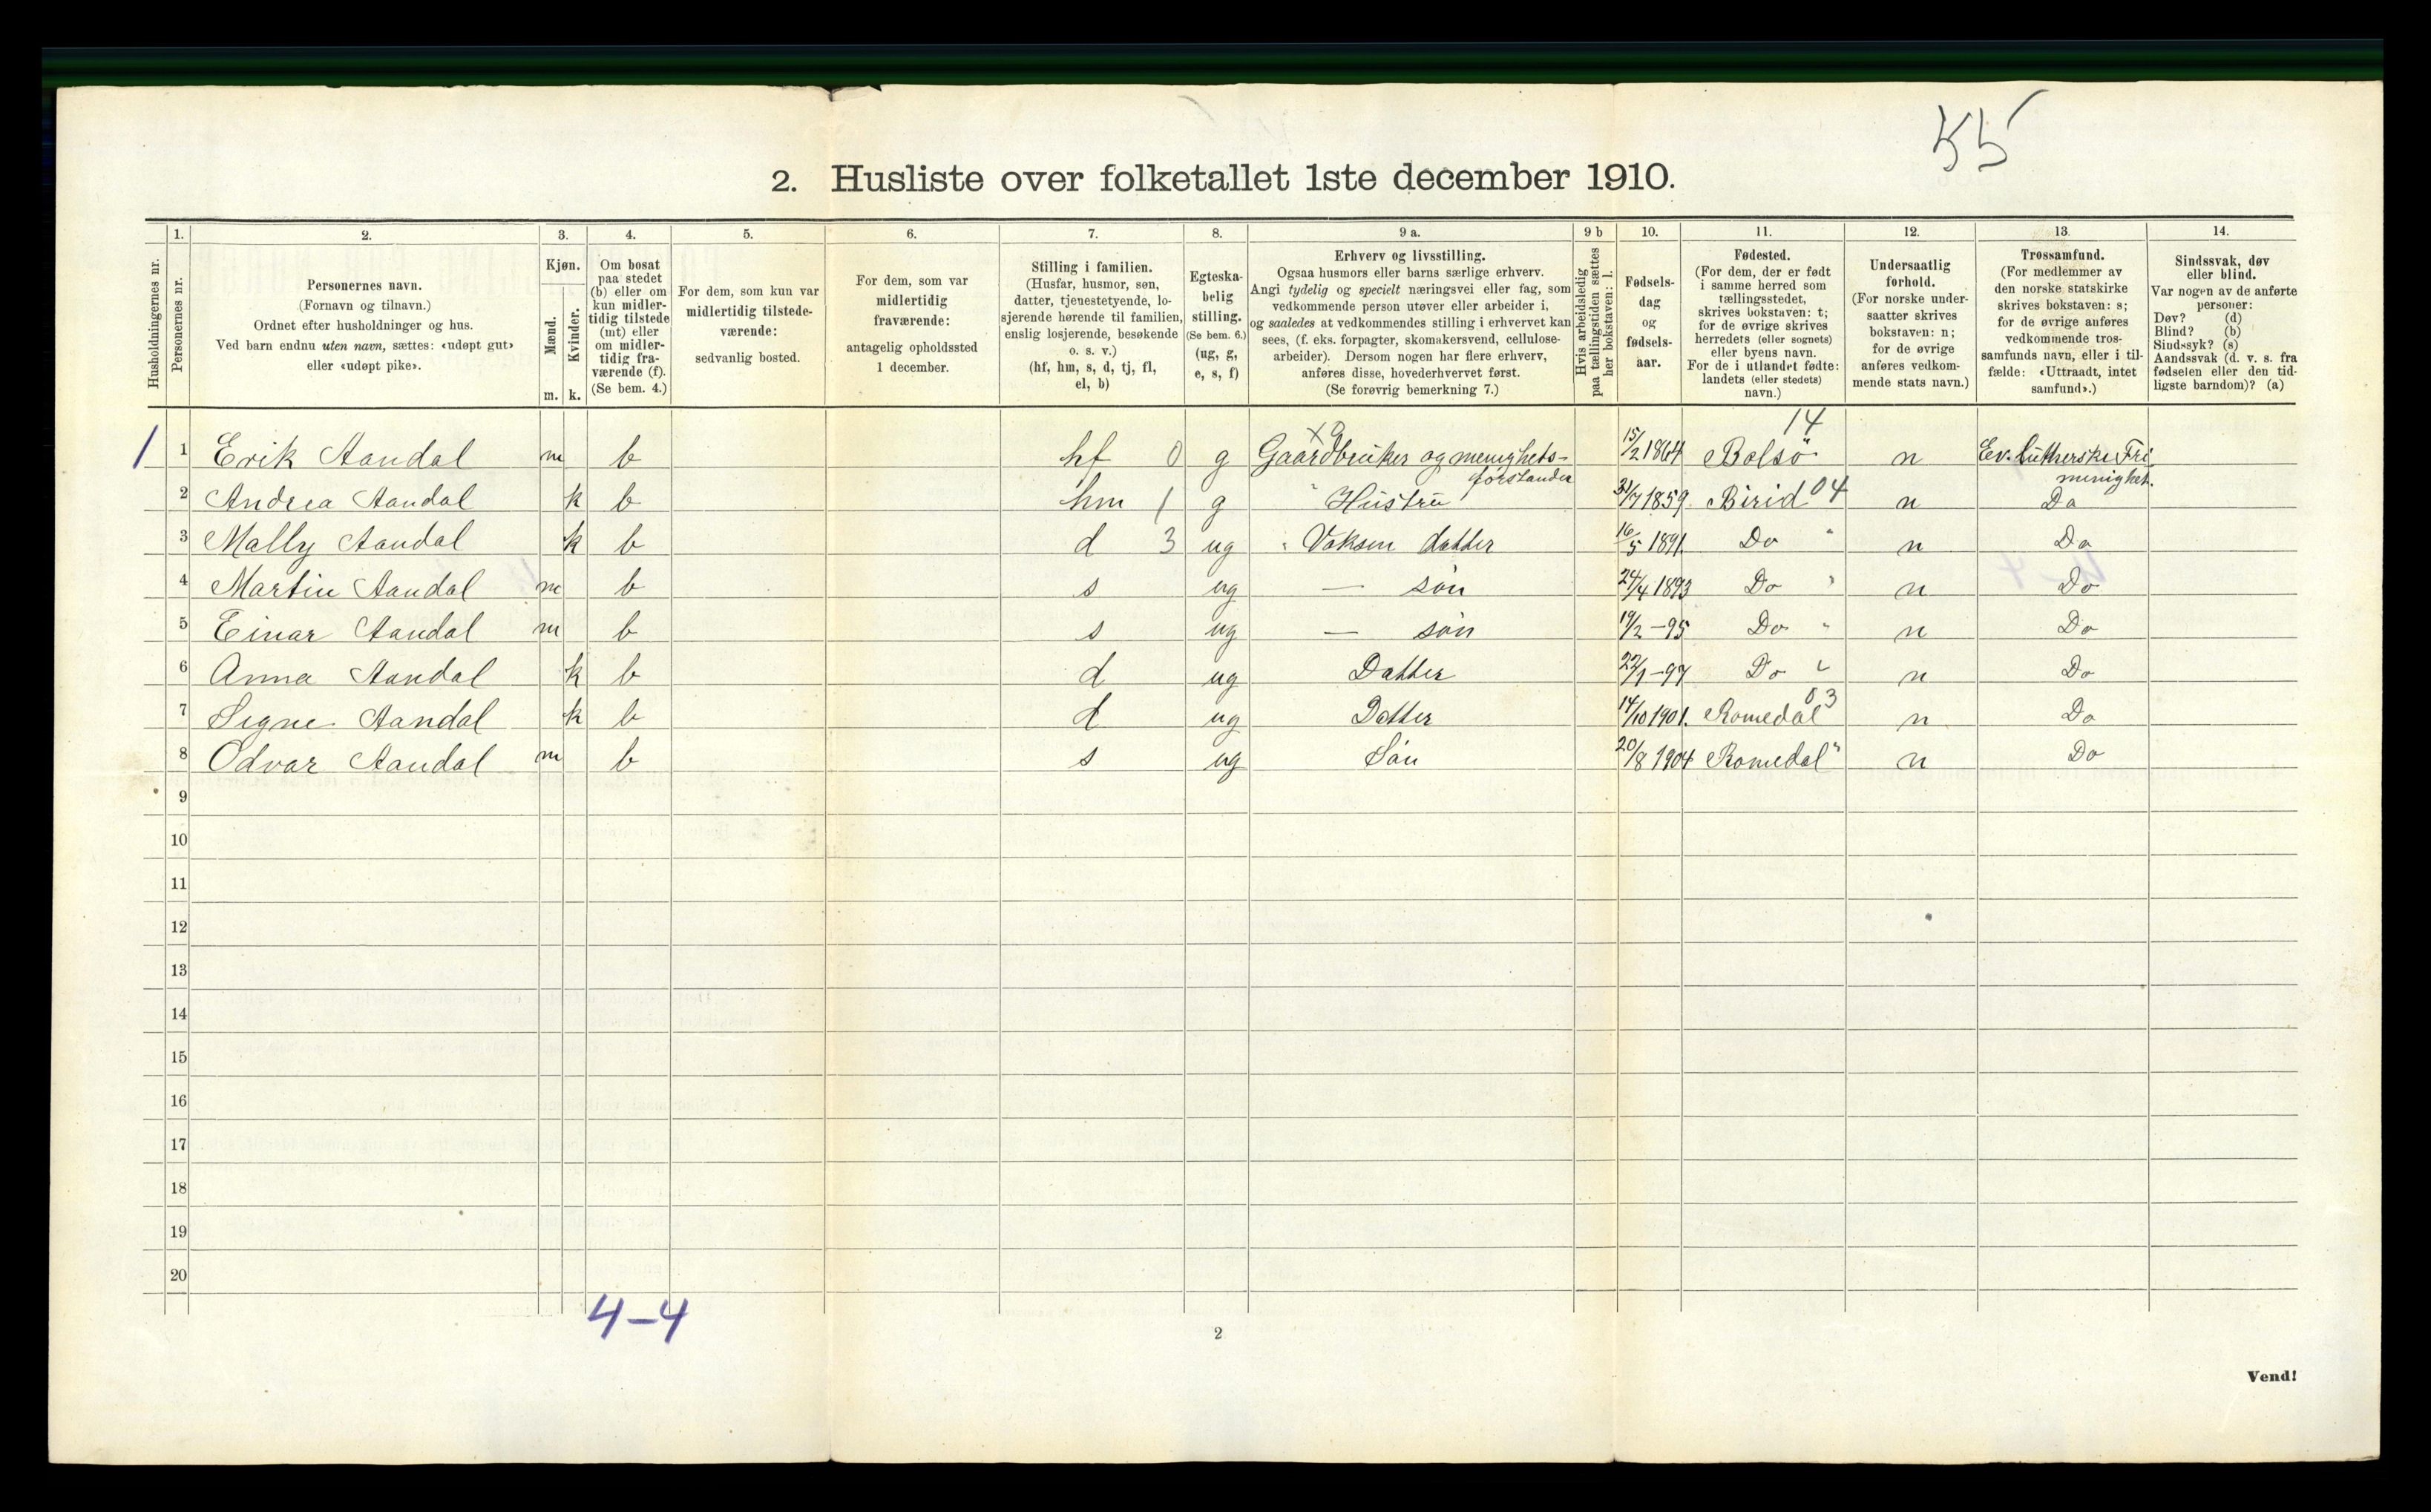 55
2. Husliste over folketallet 1ste december 1910.
Husholdningernes nr.
1. Personernes nr.
2. Personernes navn.
(Fornavn og tilnavn.)
Ordnet efter husholdninger og hus.
Ved barn endnu uten navn, sættes: «udøpt gut»
eller «udøpt pike».
3. Kjøn.
Mænd. Kvinder.
m. k.
4. Om bosat
paa stedet
(b) eller om
kun midler-
tidig tilstede
(mt) eller
om midler-
tidig fra-
værende (f).
(Se bem. 4.)
5. For dem, som kun var
midlertidig tilstede-
værende:
sedvanlig bosted.
6. For dem, som var
midlertidig
fraværende:
antagelig opholdssted
1 december.
7. Stilling i familien.
(Husfar, husmor, søn,
datter, tjenestetyende, lo-
sjerende hørende til familien,
enslig losjerende, besøkende
o. s. v.)
(hf, hm, s, d, tj, fl,
el, b)
8. Egteska-
belig
stilling.
(Se bem. 6.)
(ug, g,
e, s, f)
9 a. Erhverv og livsstilling.
Ogsaa husmors eller barns særlige erhverv.
Angi tydelig og specielt næringsvei eller fag, som
vedkommende person utøver eller arbeider i,
og saaledes at vedkommendes stilling i erhvervet kan
sees, (f. eks. forpagter, skomakersvend, cellulose-
arbeider). Dersom nogen har flere erhverv,
anføres disse, hovederhvervet først.
(Se forøvrig bemerkning 7.)
9 b Hvis arbeidsledig
paa tællingstiden sættes
her bokstaven: l.
10. Fødsels-
dag
og
fødsels-
aar.
11. Fødested.
(For dem, der er født
i samme herred som
tællingsstedet,
skrives bokstaven: t;
for de øvrige skrives
herredets (eller sognets)
eller byens navn.
For de i utlandet fødte:
landets (eller stedets)
navn.)
12. Undersaatlig
forhold.
(For norske under-
saatter skrives
bokstaven: n;
for de øvrige
anføres vedkom-
mende stats navn.)
13. Trossamfund.
(For medlemmer av
den norske statskirke
skrives bokstaven: s;
for de øvrige anføres
vedkommende tros-
samfunds navn, eller i til-
fælde: «Uttraadt, intet
samfund».)
14. Sindssvak, døv
eller blind.
Var nogen av de anførte
personer:
Døv? (d)
Blind? (b)
Sindssyk? (s)
Aandssvak (d. v. s. fra
fødselen eller den tid-
ligste barndom)? (a)
14
1 1 Erik Aandal m b hf 0 g Gaardbruker og menighets- 15/2 1864 Bolsö n Ev. Lutherske Fri
forstander menighet.
2 Andrea Aandal k b hm 1 g Hustru 31/7 1859 Birid 04 n Do
3 Mally Aandal k b d 3 ug Voksen datter 16/5 1891 Do " n Do
4 Martin Aandal m b s ug — søn 24/4 1893 Do " n Do
5 Einar Aandal m b s ug — søn 19/2 -95 Do " n Do
6 Anna Aandal k b d ug Datter 22/1 -97 Do " n Do
7 Signe Aandal k b d ug Datter 14/10 1901. Romedal 03 n Do
8 Odvar Aandal m b s ug Søn 20/8 1904 Romedal " n Do
9
10
11
12
13
14
15
16
17
18
19
20
4-4
2
Vend!